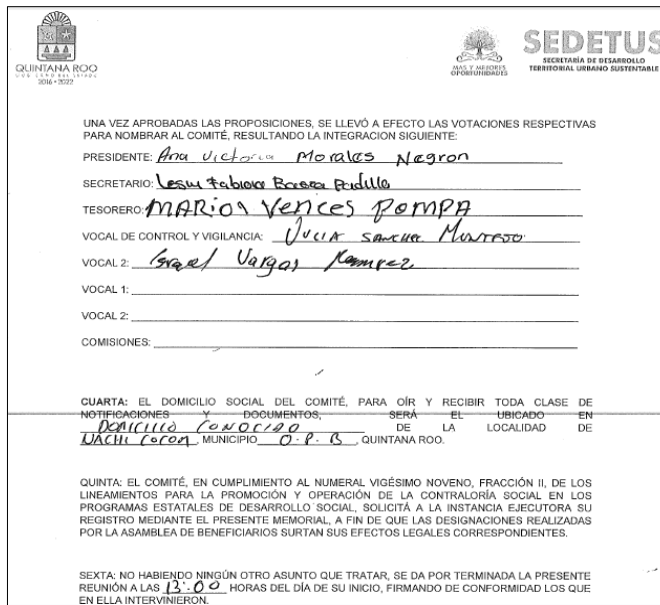 QUINTANA ROO
2016 • 2022
MAS Y MEJORES
OPORTUNIDADES
SEDETUS
SECRETARÍA DE DESARROLLO
TERRITORIAL URBANO SUSTENTABLE
UNA VEZ APROBADAS LAS PROPOSICIONES, SE LLEVÓ A EFECTO LAS VOTACIONES RESPECTIVAS
PARA NOMBRAR AL COMITÉ, RESULTANDO LA INTEGRACION SIGUIENTE:
PRESIDENTE: Ana Victoria Morales Negron
SECRETARIO: Padilla
TESORERO: Vences POMPA
VOCAL DE CONTROL Y VIGILANCIA: SANCHEZ MONTEJO
VOCAL 2: Israel Vargas Ramirez
VOCAL 1:
VOCAL 2:
COMISIONES:
CUARTA: EL DOMICILIO SOCIAL DEL COMITÉ, PARA OÍR Y RECIBIR TODA CLASE DE
NOTIFICACIONES Y DOCUMENTOS, SERÁ EL UBICADO EN
DOMICILIO CONOCIDO DE LA LOCALIDAD DE
NACHI COCOM, MUNICIPIO O.P.B, QUINTANA ROO.
QUINTA: EL COMITÉ, EN CUMPLIMIENTO AL NUMERAL VIGÉSIMO NOVENO, FRACCIÓN II, DE LOS
LINEAMIENTOS PARA LA PROMOCIÓN Y OPERACIÓN DE LA CONTRALORÍA SOCIAL EN LOS
PROGRAMAS ESTATALES DE DESARROLLO SOCIAL, SOLICITÁ A LA INSTANCIA EJECUTORA SU
REGISTRO MEDIANTE EL PRESENTE MEMORIAL, A FIN DE QUE LAS DESIGNACIONES REALIZADAS
POR LA ASAMBLEA DE BENEFICIARIOS SURTAN SUS EFECTOS LEGALES CORRESPONDIENTES.
SEXTA: NO HABIENDO NINGÚN OTRO ASUNTO QUE TRATAR, SE DA POR TERMINADA LA PRESENTE
REUNIÓN A LAS 13:00 HORAS DEL DÍA DE SU INICIO, FIRMANDO DE CONFORMIDAD LOS QUE
EN ELLA INTERVINIERON.